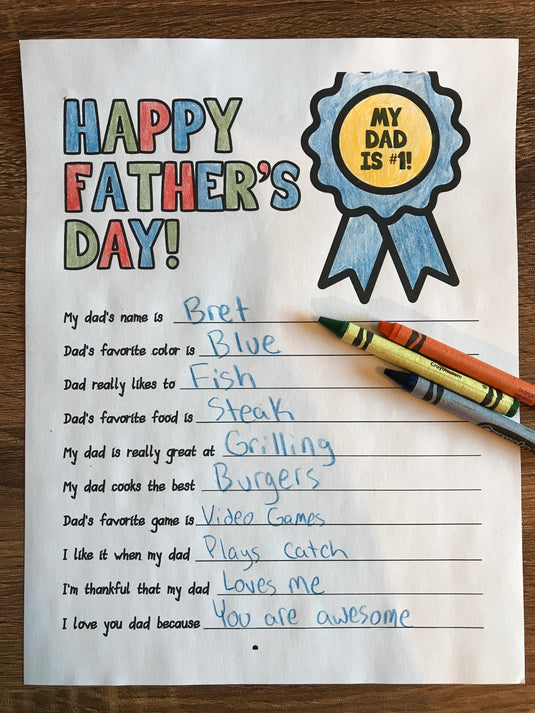 HAPPY
FATHER'S
DAY!
MY
DAD
IS #1!
My dad's name is Bret
Dad's favorite color is Blue
Dad really likes to Fish
Dad's favorite food is Steak
My dad is really great at Grilling
My dad cooks the best Burgers
Dad's favorite game is Video Games
I like it when my dad Plays catch
I'm thankful that my dad Loves me
I love you dad because You are awesome
Crayola